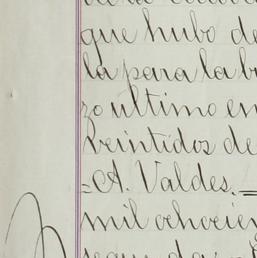 que hubo de
la para la b
zo ultimo en
veintidos de
=A. Valdes.=
mil ochocien